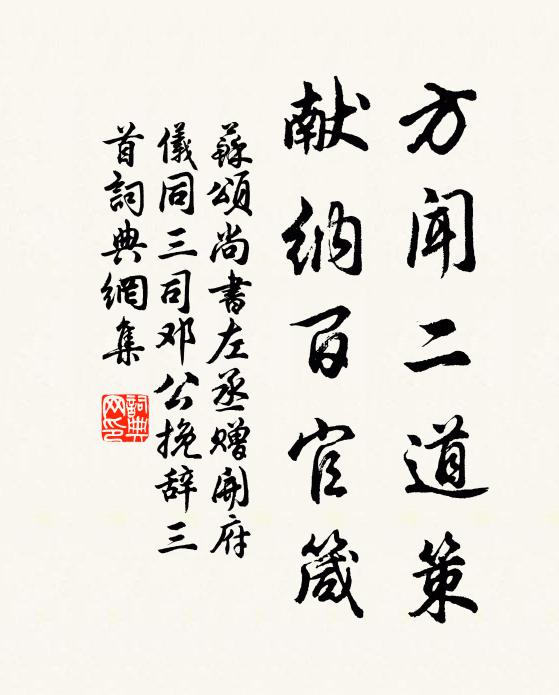 方闻二道策
献纳百官箴
蘇頌尚書左丞赠開府
儀同三司邓公挽辞三
首詞典網集
詞典
网印